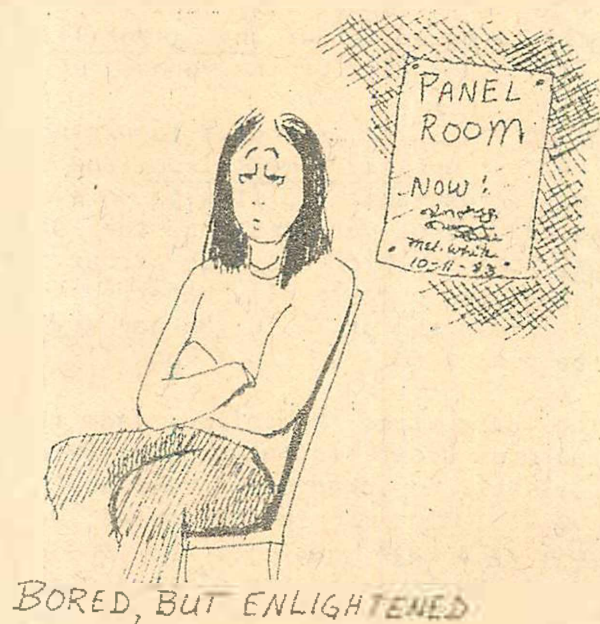 PANEL
ROOM
NOW!
Mel. White
10-11-83
BORED, BUT ENLIGHTENED